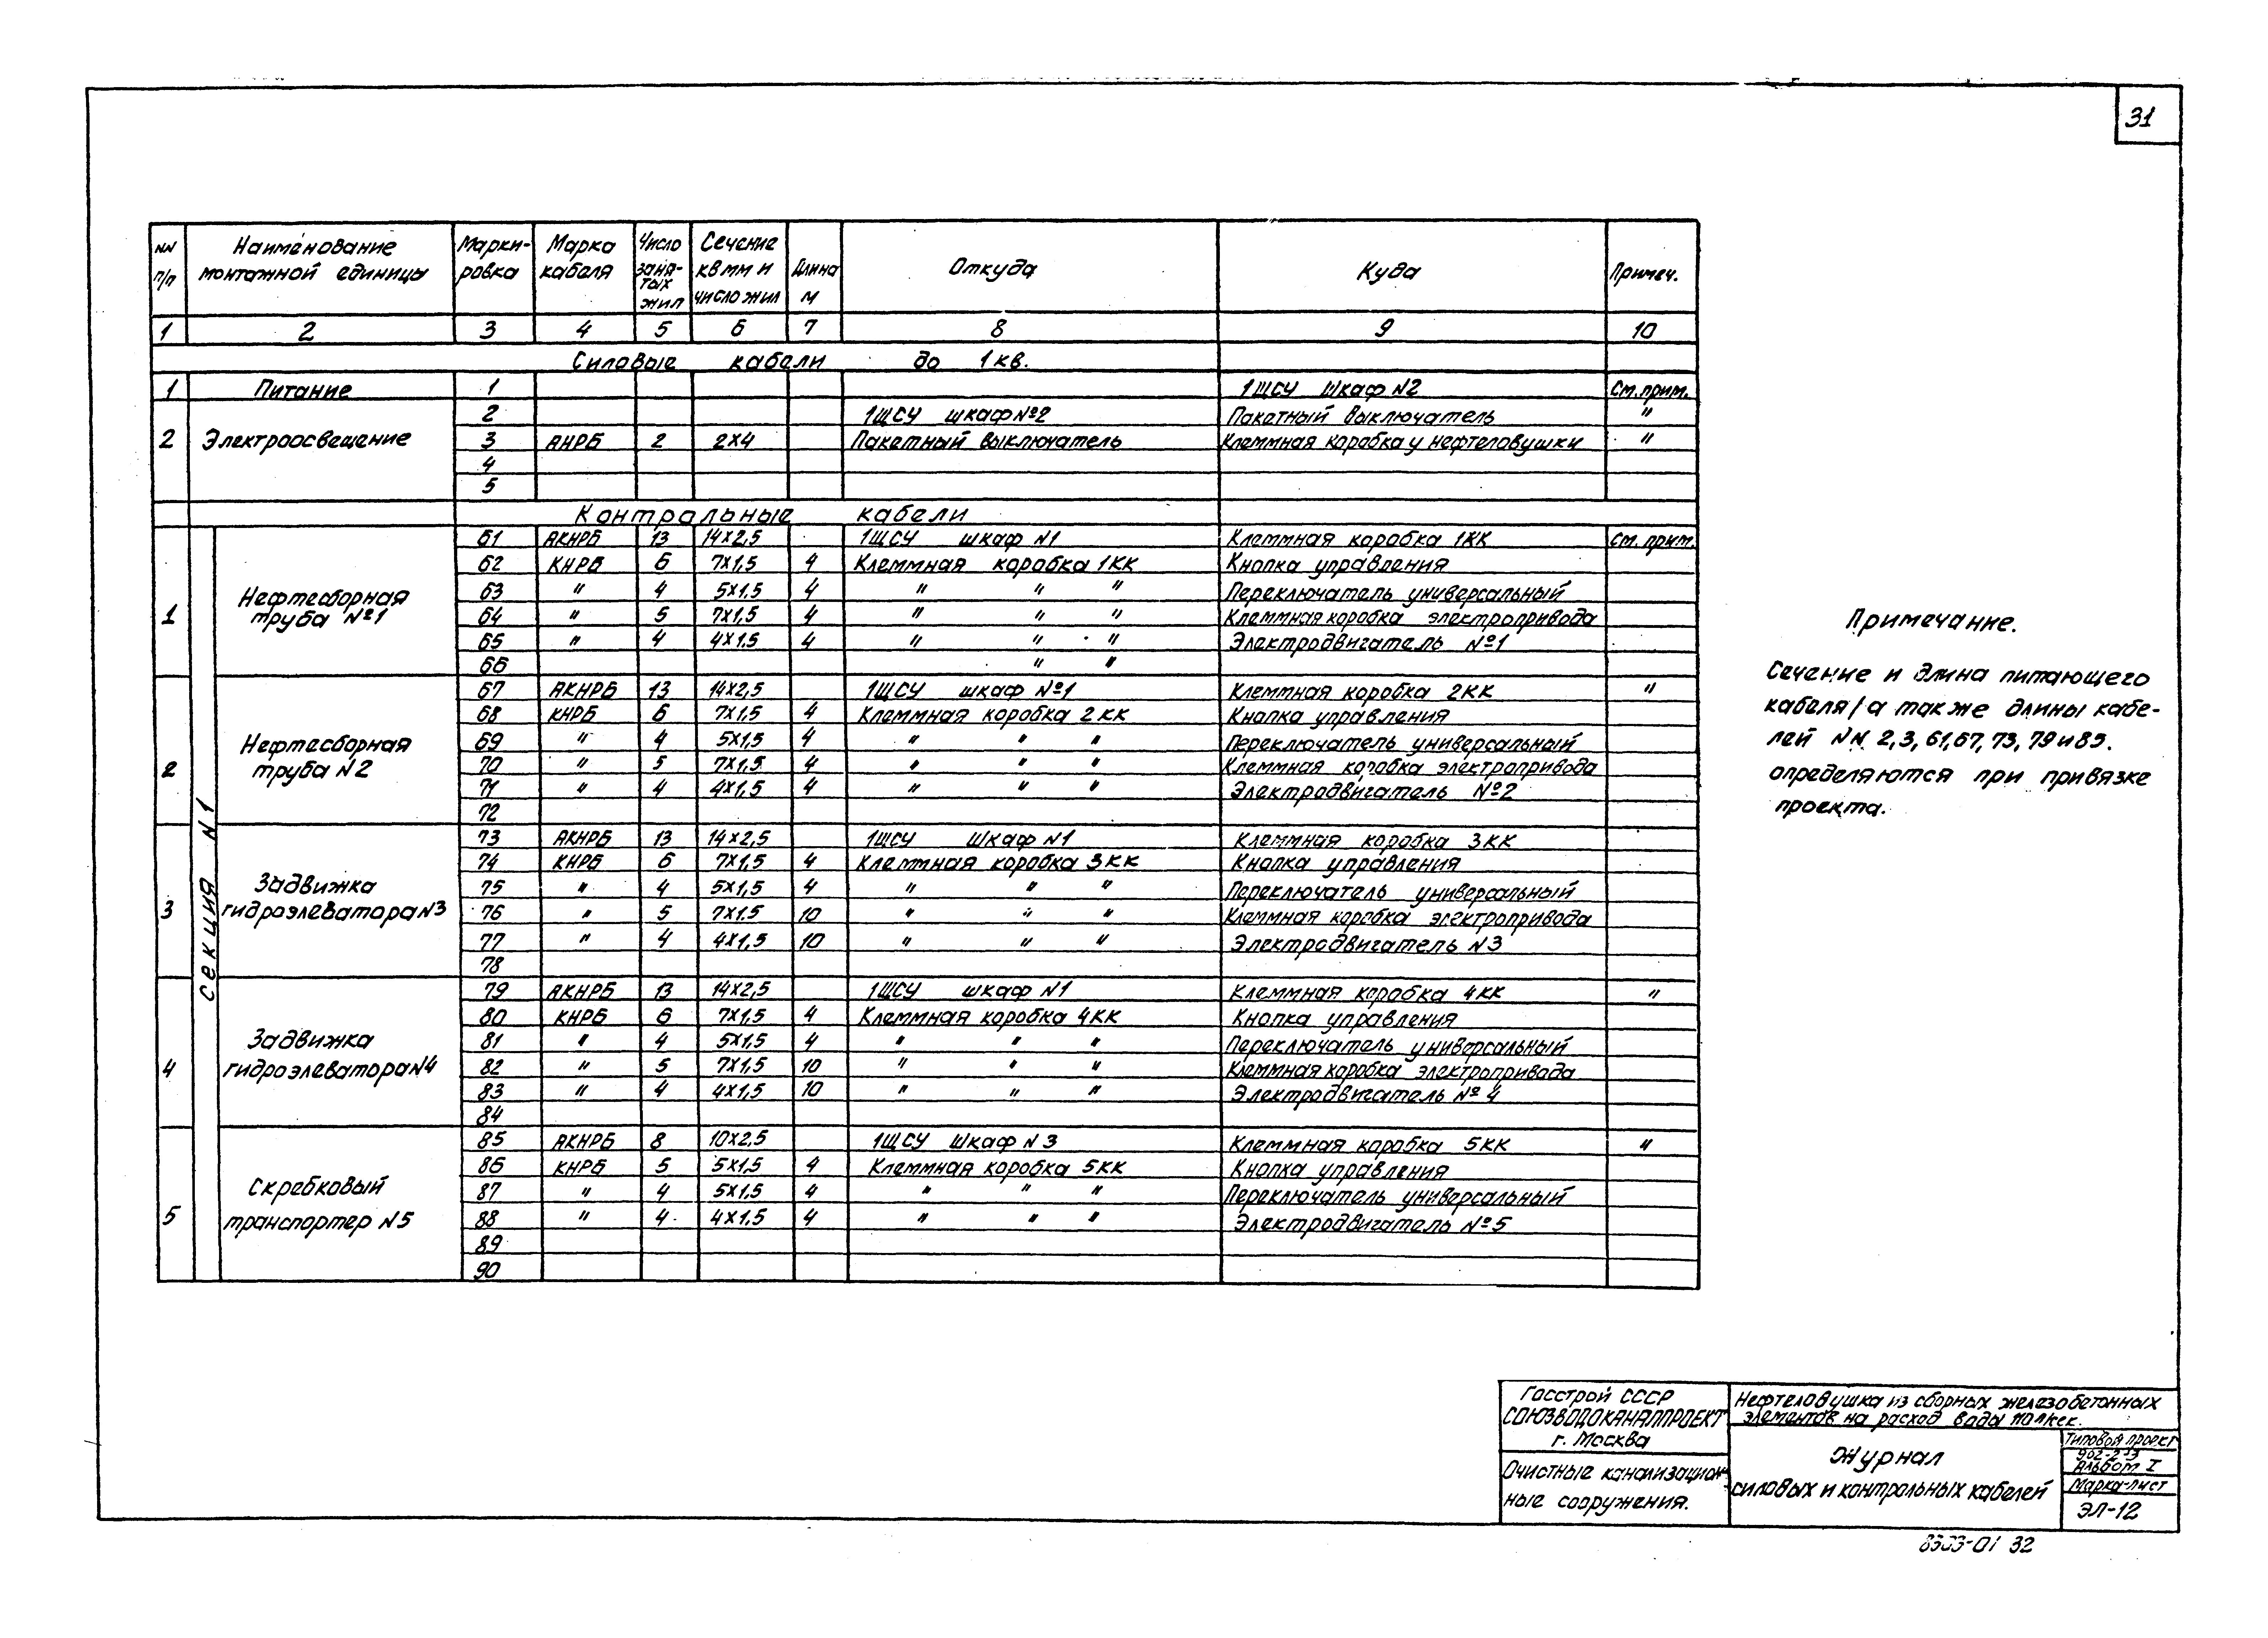 31
NN п/п | Наименование монтажной единицы | Марки-ровка | Марка кабеля | Число заня-тых жил | Сечение кв мм и число жил | Длина м | Откуда | Куда | Примеч.
1 | 2 | 3 | 4 | 5 | 6 | 7 | 8 | 9 | 10
Силовые кабели до 1кв.
1 | Питание | 1 | 1ЩСУ Шкаф N2 | См. прим.
2 | 1ЩСУ шкаф №2 | Пакетный выключатель | "
2 | Электроосвещение | 3 | АНРБ | 2 | 2х4 | Пакетный выключатель | Клеммная коробка у нефтеловушки | "
4
5
Контрольные кабели
Секция N1
61 | АКНРБ | 13 | 14х2,5 | 1ЩСУ шкаф N1 | Клеммная коробка 1КК | См. прим.
62 | КНРБ | 6 | 7х1,5 | 4 | Клеммная коробка 1КК | Кнопка управления
1 | Нефтесборная труба №1 | 63 | " | 4 | 5х1,5 | 4 | " " " | Переключатель универсальный
64 | " | 5 | 7х1,5 | 4 | " " " | Клеммная коробка электропривода
65 | " | 4 | 4х1,5 | 4 | " " " | Электродвигатель №1
66 | " "
67 | АКНРБ | 13 | 14х2,5 | 1ЩСУ шкаф №1 | Клеммная коробка 2КК | "
68 | КНРБ | 6 | 7х1,5 | 4 | Клеммная коробка 2КК | Кнопка управления
2 | Нефтесборная труба N2 | 69 | " | 4 | 5х1,5 | 4 | " " " | Переключатель универсальный
70 | " | 5 | 7х1,5 | 4 | " " " | Клеммная коробка электропривода
71 | " | 4 | 4х1,5 | 4 | " " " | Электродвигатель №2
72
73 | АКНРБ | 13 | 14х2,5 | 1ЩСУ Шкаф N1 | Клеммная коробка 3КК
74 | КНРБ | 6 | 7х1,5 | 4 | Клеммная коробка 3КК | Кнопка управления
3 | Задвижка гидроэлеватора N3 | 75 | " | 4 | 5х1,5 | 4 | " " " | Переключатель универсальный
76 | " | 5 | 7х1,5 | 10 | " " " | Клеммная коробка электропривода
77 | " | 4 | 4х1,5 | 10 | " " " | Электродвигатель N3
78
79 | АКНРБ | 13 | 14х2,5 | 1ЩСУ шкаф N1 | Клеммная коробка 4КК | "
80 | КНРБ | 6 | 7х1,5 | 4 | Клеммная коробка 4КК | Кнопка управления
4 | Задвижка гидроэлеватора N4 | 81 | " | 4 | 5х1,5 | 4 | " " " | Переключатель универсальный
82 | " | 5 | 7х1,5 | 10 | " " " | Клеммная коробка электропривода
83 | " | 4 | 4х1,5 | 10 | " " " | Электродвигатель № 4
84
85 | АКНРБ | 8 | 10х2,5 | 1ЩСУ Шкаф N3 | Клеммная коробка 5КК | "
86 | КНРБ | 5 | 5х1,5 | 4 | Клеммная коробка 5КК | Кнопка управления
5 | Скребковый транспортер N5 | 87 | " | 4 | 5х1,5 | 4 | " " " | Переключатель универсальный
88 | " | 4 | 4х1,5 | 4 | " " " | Электродвигатель №5
89
90
Примечание.
Сечение и длина питающего
кабеля/а также длины кабе-
лей NN 2,3,61,67,73,79 и 85.
определяются при привязке
проекта.
Госстрой СССР
СОЮЗВОДОКАНАЛПРОЕКТ
г. Москва
Очистные канализацион-
ные сооружения.
Нефтеловушка из сборных железобетонных
элементов на расход воды л/сек.
Журнал
силовых и контрольных кабелей
Типовой проект
902-2-
Альбом I
Марка-лист
ЭЛ-12
8303-01 32